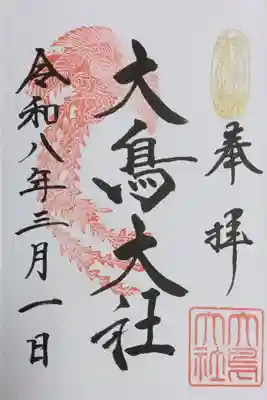 奉拝
大鳥大社
令和八年三月一日
大鳥大社